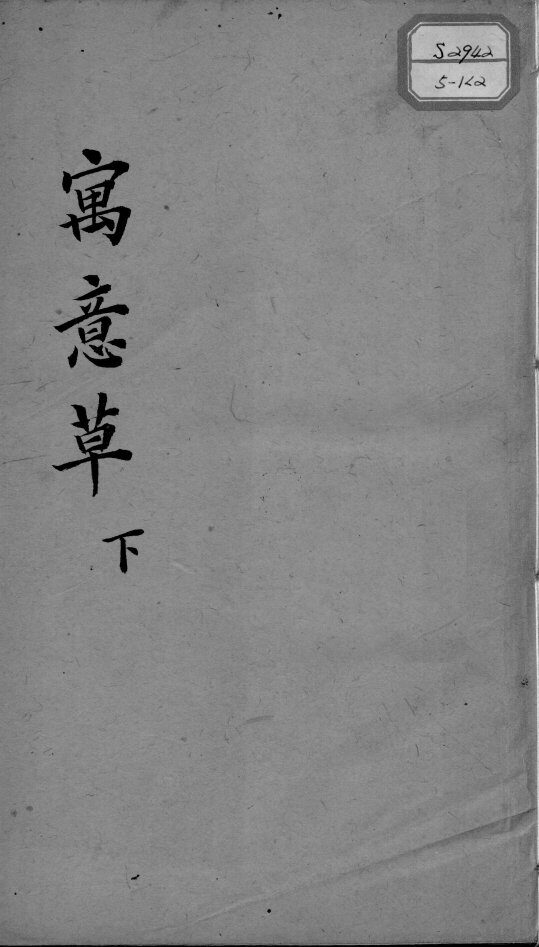 S2942
5-1<2
寓意草
下